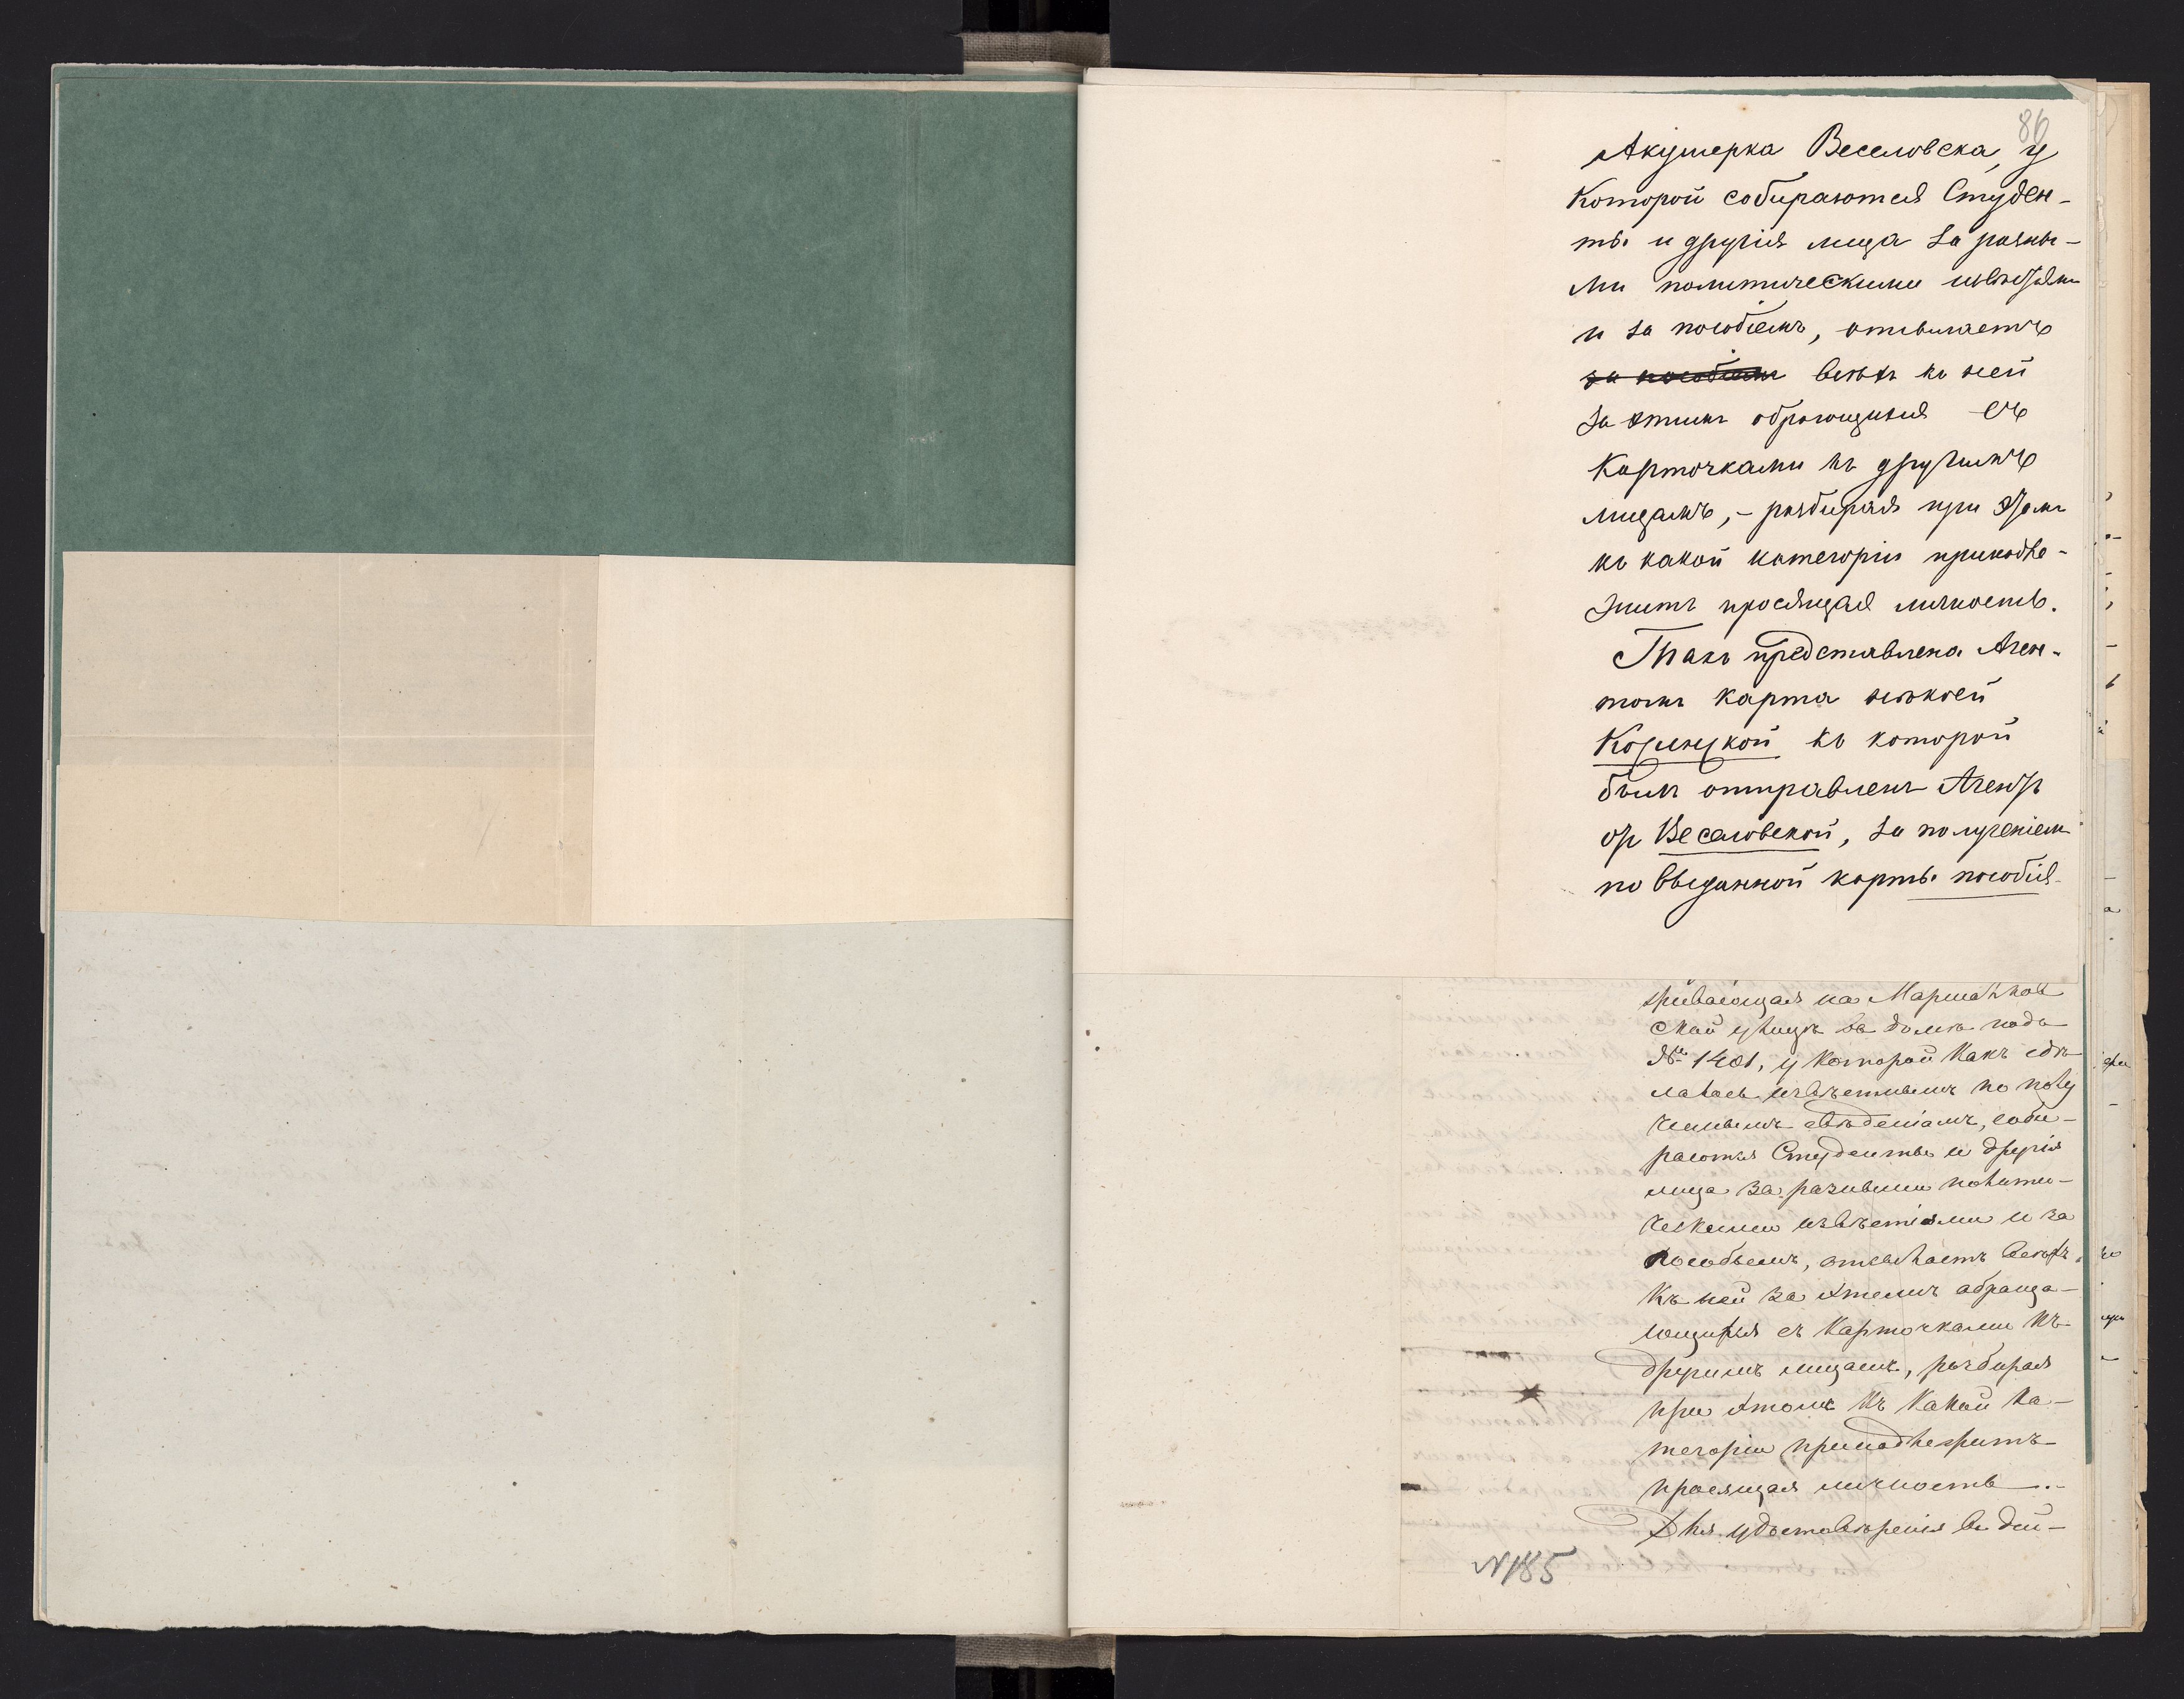 86
Акушерка Веселовска, у
которой собираются Студен-
ты и другія лица за разны-
ми политическими извѣстіями
и за пособіемъ, отсылаетъ
за пособіемъ всѣхъ къ ней
за этимъ обращающихся съ
карточками къ другимъ
лицамъ, - разбирая при этомъ
къ какой категоріи принадле-
житъ просящая личность.
Такъ представлена Аген-
томъ карта нѣкоей
къ которой
былъ отправленъ Агентъ
отъ Веселовской, за полученіемъ
по выданной карты пособія.
живающая на Маршалков
ской улицѣ въ домѣ подъ
№ 1401, у которой какъ сдѣ
лалось извѣстнымъ по полу
ченнымъ свѣденіямъ, соби-
раются Студенты и другія
лица за разными полити-
ческими извѣстіями и за
пособьемъ, отсылаетъ всѣхъ
къ ней за этимъ обраща-
ющихся съ карточками къ
другимъ лицамъ, разбирая
при этомъ къ какой ка-
тегоріи принадлежитъ
просящая личность.-
Для удостовѣренія въ дѣй-
№185